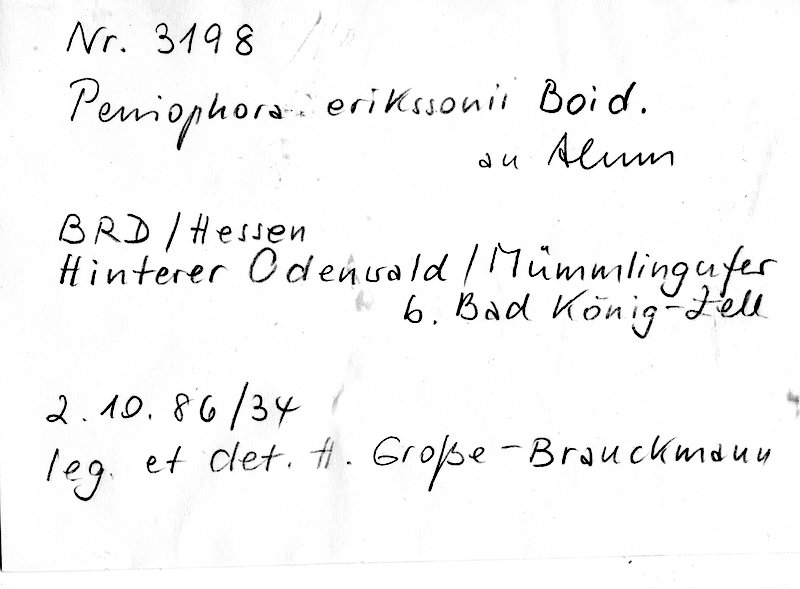 Nr. 3198
Peniophora erikssonii Boid.
an Alnus
BRD/Hessen
Hinterer Odenwald/Mümmlingufer
b. Bad König-Zell
2.10.86/34
leg. et det. H. Große-Brauckmann